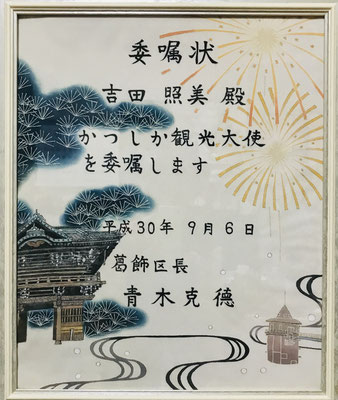 委嘱状
吉田 照美 殿
かつしか観光大使
を委嘱します
平成30年 9月6日
葛飾区長
青木克德